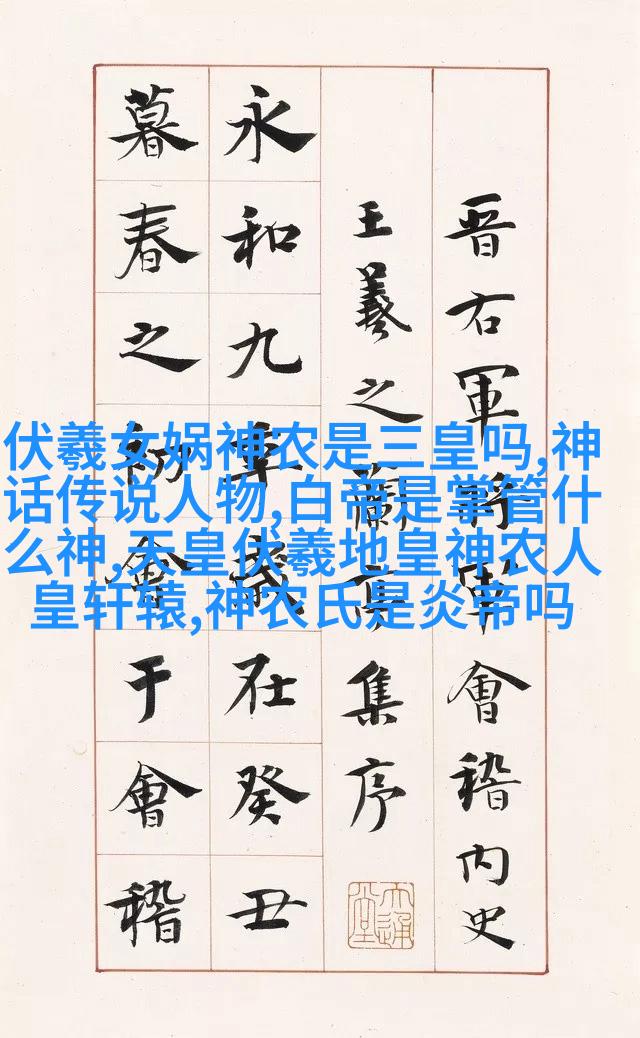 伏羲女娲神农是三皇吗,神
话传说人物,白帝是掌管什
么神,天皇伏羲地皇神农人
皇轩辕,神农氏是炎帝吗
晋右軍將軍會稽内史
王羲之蘭亭集序
永和九年歲在癸丑
暮春之初會于會稽